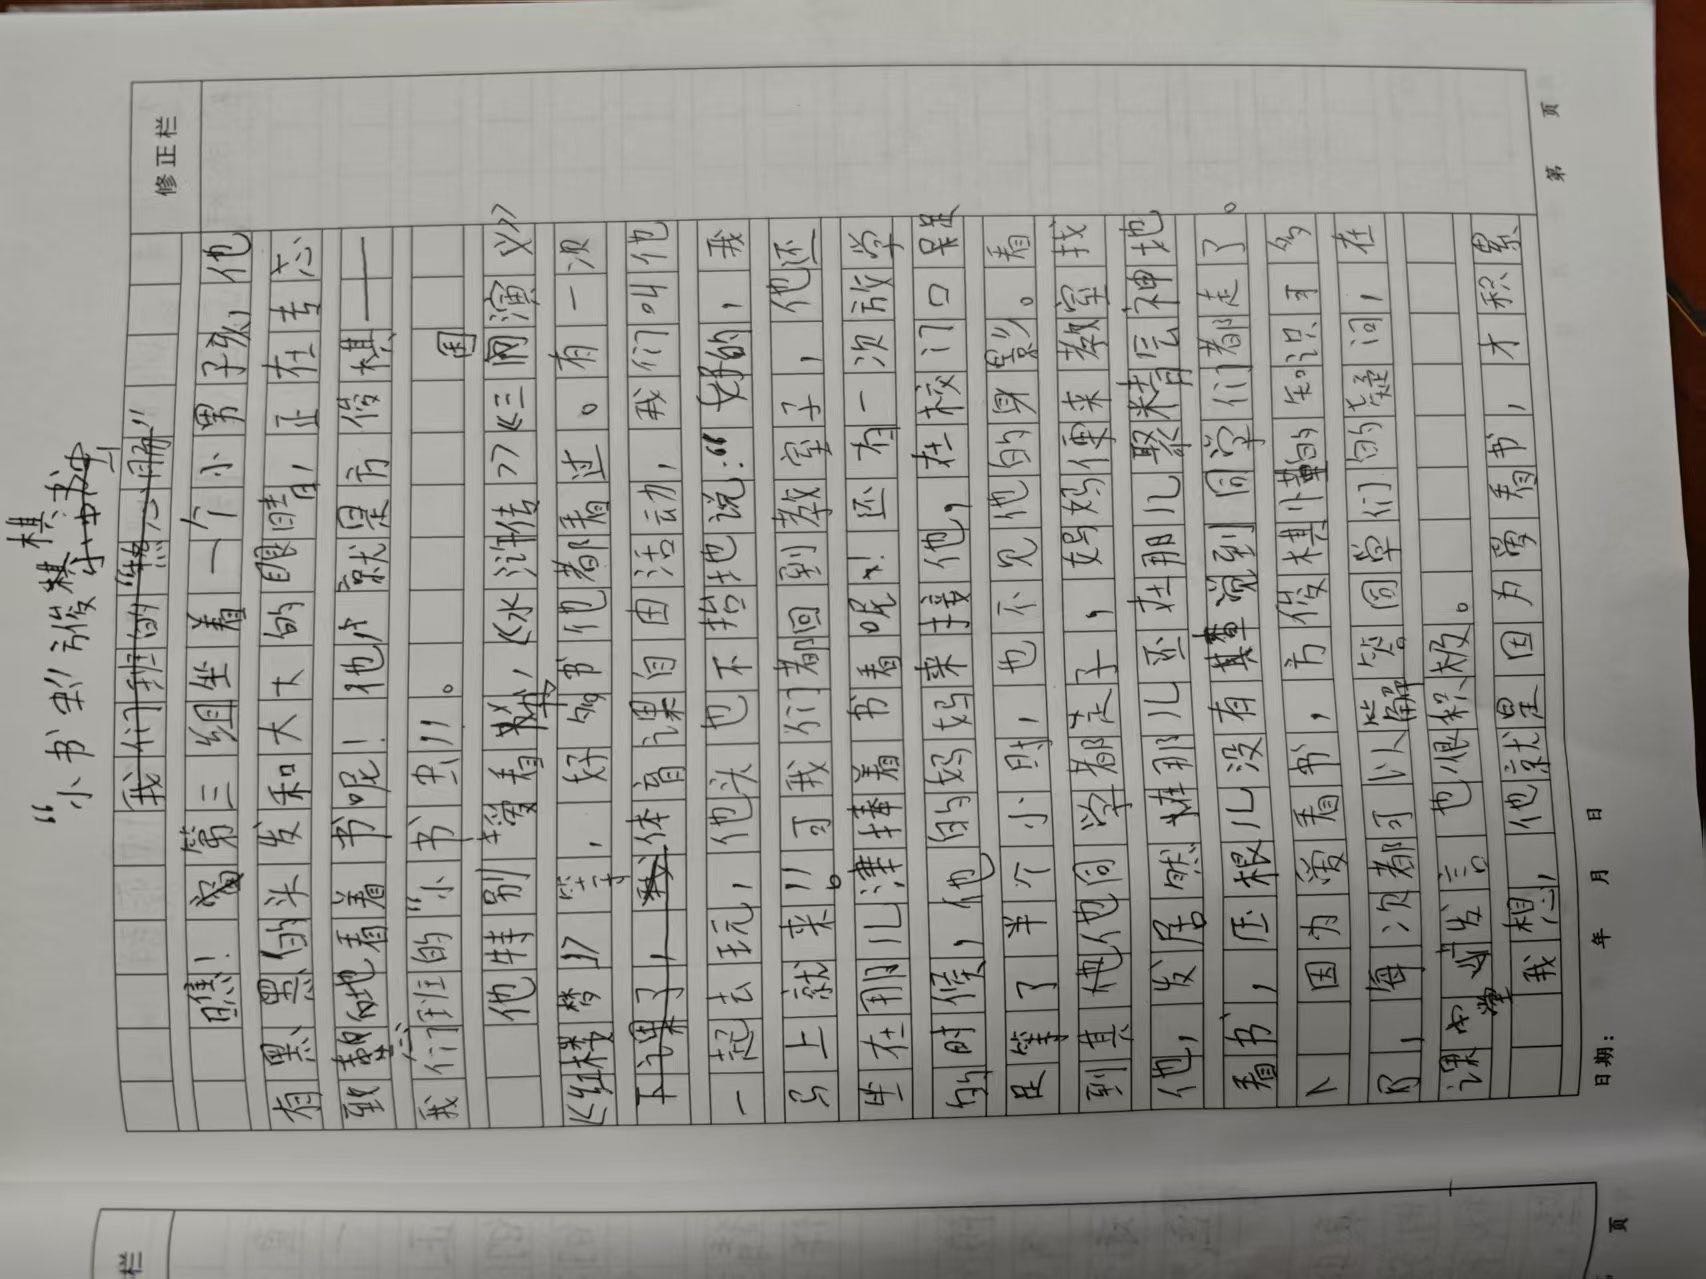 “小书虫”方俊棋
修正栏
我们班的“熊心月册”
瞧！第三组坐着一个小男子孩，他
有黑黑的头发和大大的眼睛，正在专心
致志的地看着书呢！他就是方俊棋——
我们班的“小书虫”。
他特别爱看书，《水浒传》《三国演义》
《红楼梦》等，好多书他都看过。有一次
下课了，我体育课自由活动，我们叫他
一起去玩，他头也不抬地说：“好的，我
马上就来！”可我们都回到教室了，他还
坐在那儿津津捧着书看呢！还有一次放学
的时候，他的妈妈来接他，在校门口足
足等了半个小时，也不见他的身影。看
到其他同学都走了，妈妈便来教室找
他，发居然在那儿还在那儿聚精会神地
看书，压根儿没有觉到同学们都走了。
因为爱看书，方俊棋懂的知识可多
了，每次都可以解答同学们的疑问，在
课堂发言也很积极。
我想，他就是因为爱看书，才积累
日期： 年 月 日
第 页
栏
页